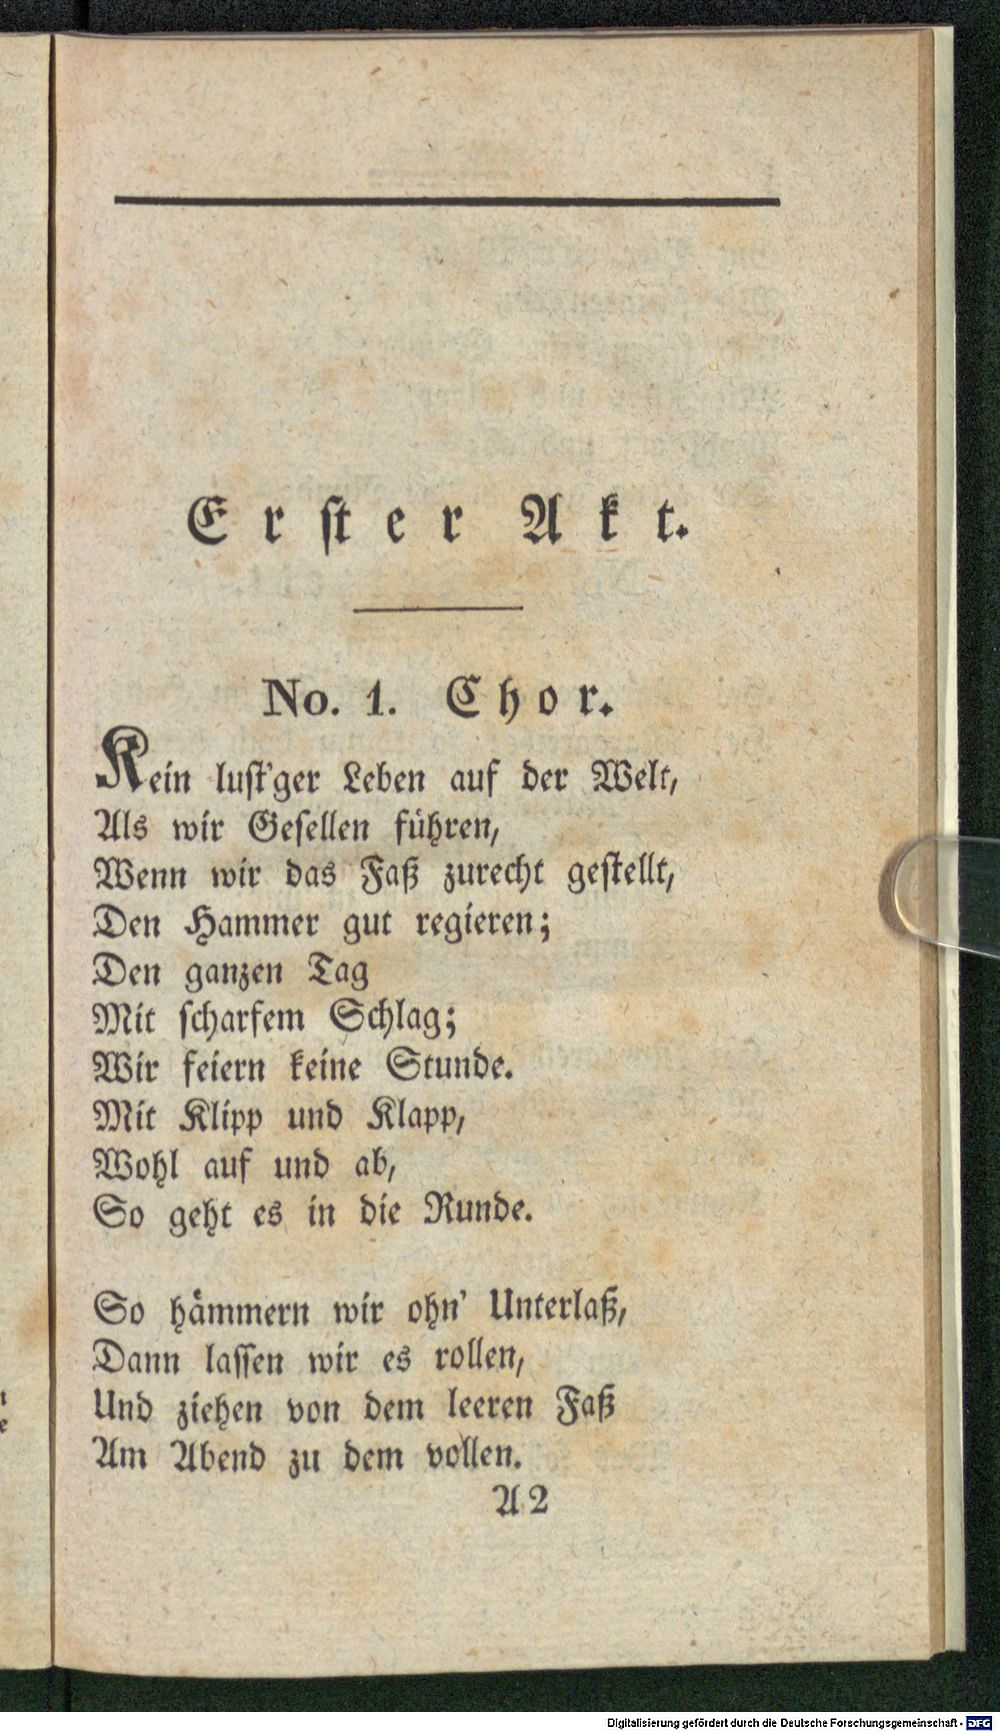 Erster Akt.
No. 1. Chor.
Kein lust'ger Leben auf der Welt,
Als wir Gesellen führen,
Wenn wir das Faß zurecht gestellt,
Den Hammer gut regieren;
Den ganzen Tag
Mit scharfem Schlag;
Wir feiern keine Stunde.
Mit Klipp und Klapp,
Wohl auf und ab,
So geht es in die Runde.
So hämmern wir ohn' Unterlaß,
Dann lassen wir es rollen,
Und ziehen von dem leeren Faß
Am Abend zu dem vollen.
A 2
Digitalisierung gefördert durch die Deutsche Forschungsgemeinschaft - DFG